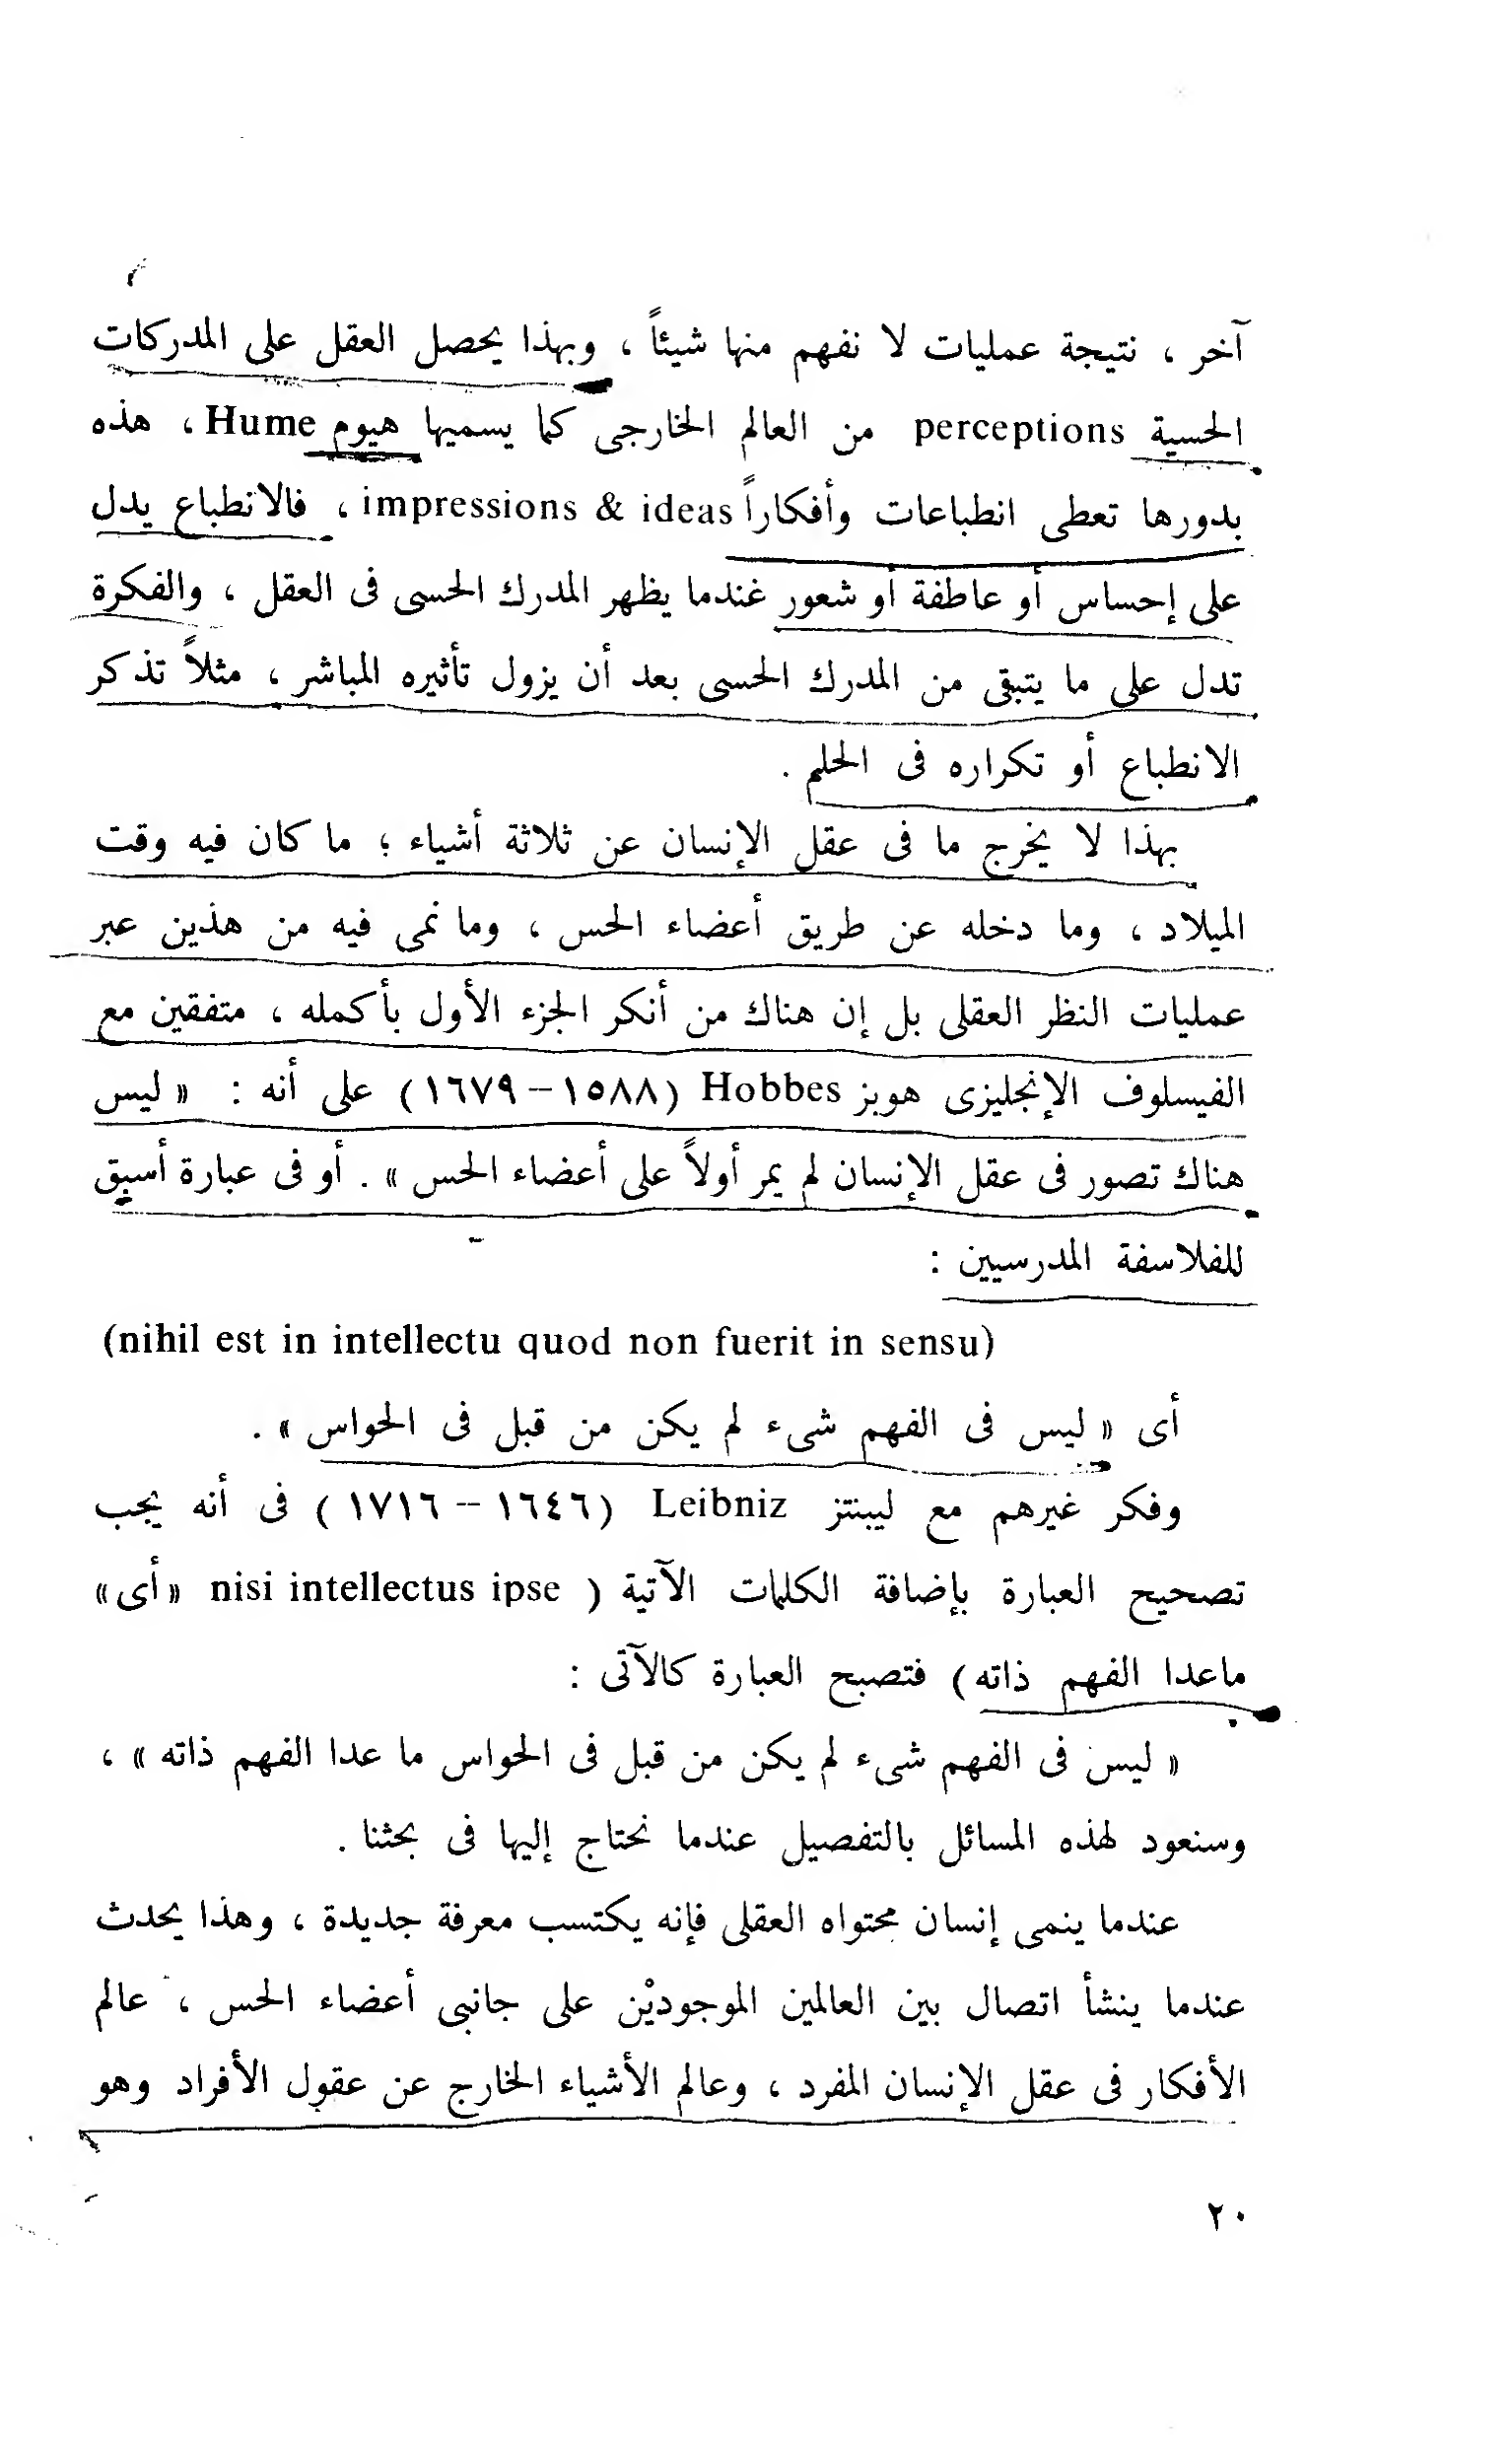 آخر ، نتيجة عمليات لا نفهم منها شيئاً ، وبهذا يحصل العقل على المدركات
الحسية perceptions من العالم الخارجى كما يسميها هيوم Hume ، هذه
بدورها تعطى انطباعات وأفكاراً impressions & ideas ، فالانطباع يدل
على إحساس أو عاطفة أو شعور غندما يظهر المدرك الحسى فى العقل ، والفكرة
تدل على ما يتبقى من المدرك الحسى بعد أن يزول تأثيره المباشر ، مثلاً تذكر
الانطباع أو تكراره فى الحلم .
بهذا لا يخرج ما فى عقل الإنسان عن ثلاثة أشياء ؛ ما كان فيه وقت
الميلاد ، وما دخله عن طريق أعضاء الحس ، وما نمى فيه من هذين عبر
عمليات النظر العقلى بل إن هناك من أنكر الجزء الأول بأكمله ، متفقين مع
الفيسلوف الإنجليزى هوبز Hobbes (١٥٨٨–١٦٧٩) على أنه : « ليس
هناك تصور فى عقل الإنسان لم يمر أولاً على أعضاء الحس » . أو فى عبارة أسبق
للفلاسفة المدرسيين :
(nihil est in intellectu quod non fuerit in sensu)
أى « ليس فى الفهم شىء لم يكن من قبل فى الحواس » .
وفكر غيرهم مع ليبنتز Leibniz (١٦٤٦ – ١٧١٦ ) فى أنه يجب
تصحيح العبارة بإضافة الكلمات الآتية ( nisi intellectus ipse «أى»
ماعدا الفهم ذاته) فتصبح العبارة كالآتى :
« ليس فى الفهم شىء لم يكن من قبل فى الحواس ما عدا الفهم ذاته » ،
وسنعود لهذه المسائل بالتفصيل عندما نحتاج إليها فى بحثنا .
عندما ينمى إنسان محتواه العقلى فإنه يكتسب معرفة جديدة ، وهذا يحدث
عندما ينشأ اتصال بين العالمين الموجوديْن على جانبى أعضاء الحس ، عالم
الأفكار فى عقل الإنسان المفرد ، وعالم الأشياء الخارج عن عقول الأفراد وهو
٢٠